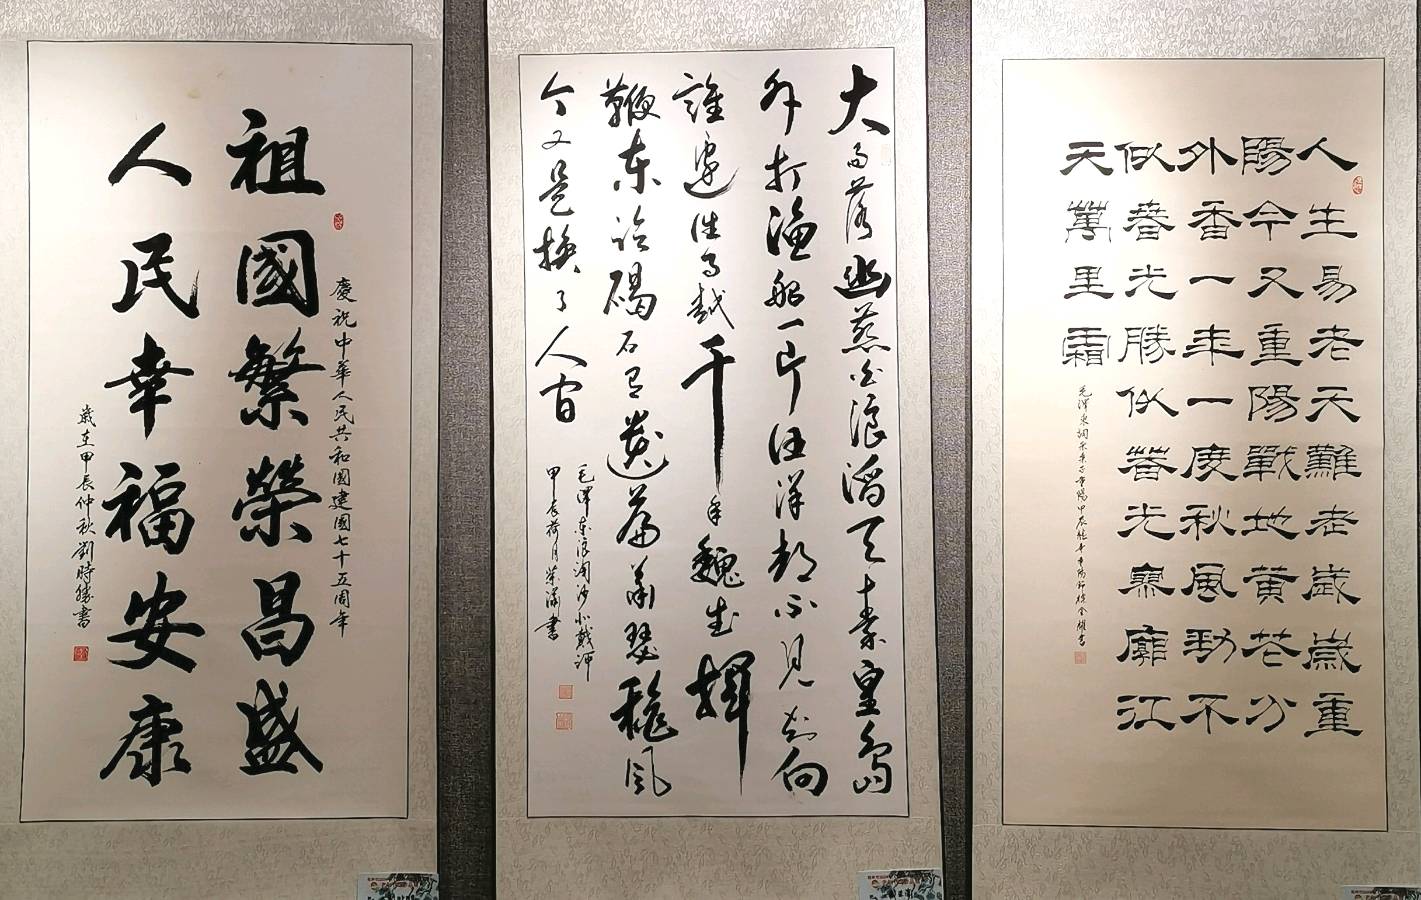 慶祝中華人民共和國建國七十五周年
祖國繁榮昌盛
人民幸福安康
歲在甲辰仲秋劉時勝書
大雨落幽燕白浪滔天秦皇島
外打漁船一片汪洋都不見知向
誰邊往事越千年魏武揮
鞭東臨碣石有遺篇蕭瑟秋風
今又是換了人間
毛澤東浪淘沙北戴河
甲辰荷月榮瀟書
人生易老天難老歲歲重
陽今又重陽戰地黃花分
外香一年一度秋風勁不
似春光勝似春光寥廓江
天萬里霜
毛澤東詞采桑子重陽甲辰龍年重陽節